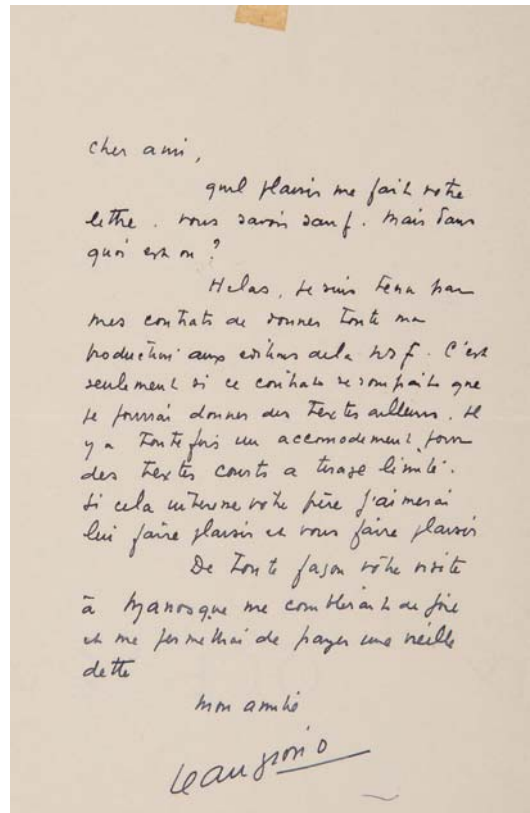 cher ami,
quel plaisir me fait votre
lettre. vous savoir sauf. Mais dans
quoi est on ?
Helas, je suis tenu par
mes contrats de donner toute ma
production aux editions de la nrf. C'est
seulement si ce contrat se rompait que
je pourrai donner des textes ailleurs. Il
y a toutefois un accomodement pour
des textes courts a tirage limité.
Si cela interesse votre père j'aimerai
lui faire plaisir et vous faire plaisir
De toute façon votre visite
à Manosque me comblerait de joie
et me permettrai de payer une vieille
dette
Mon amitié
Jean Giono